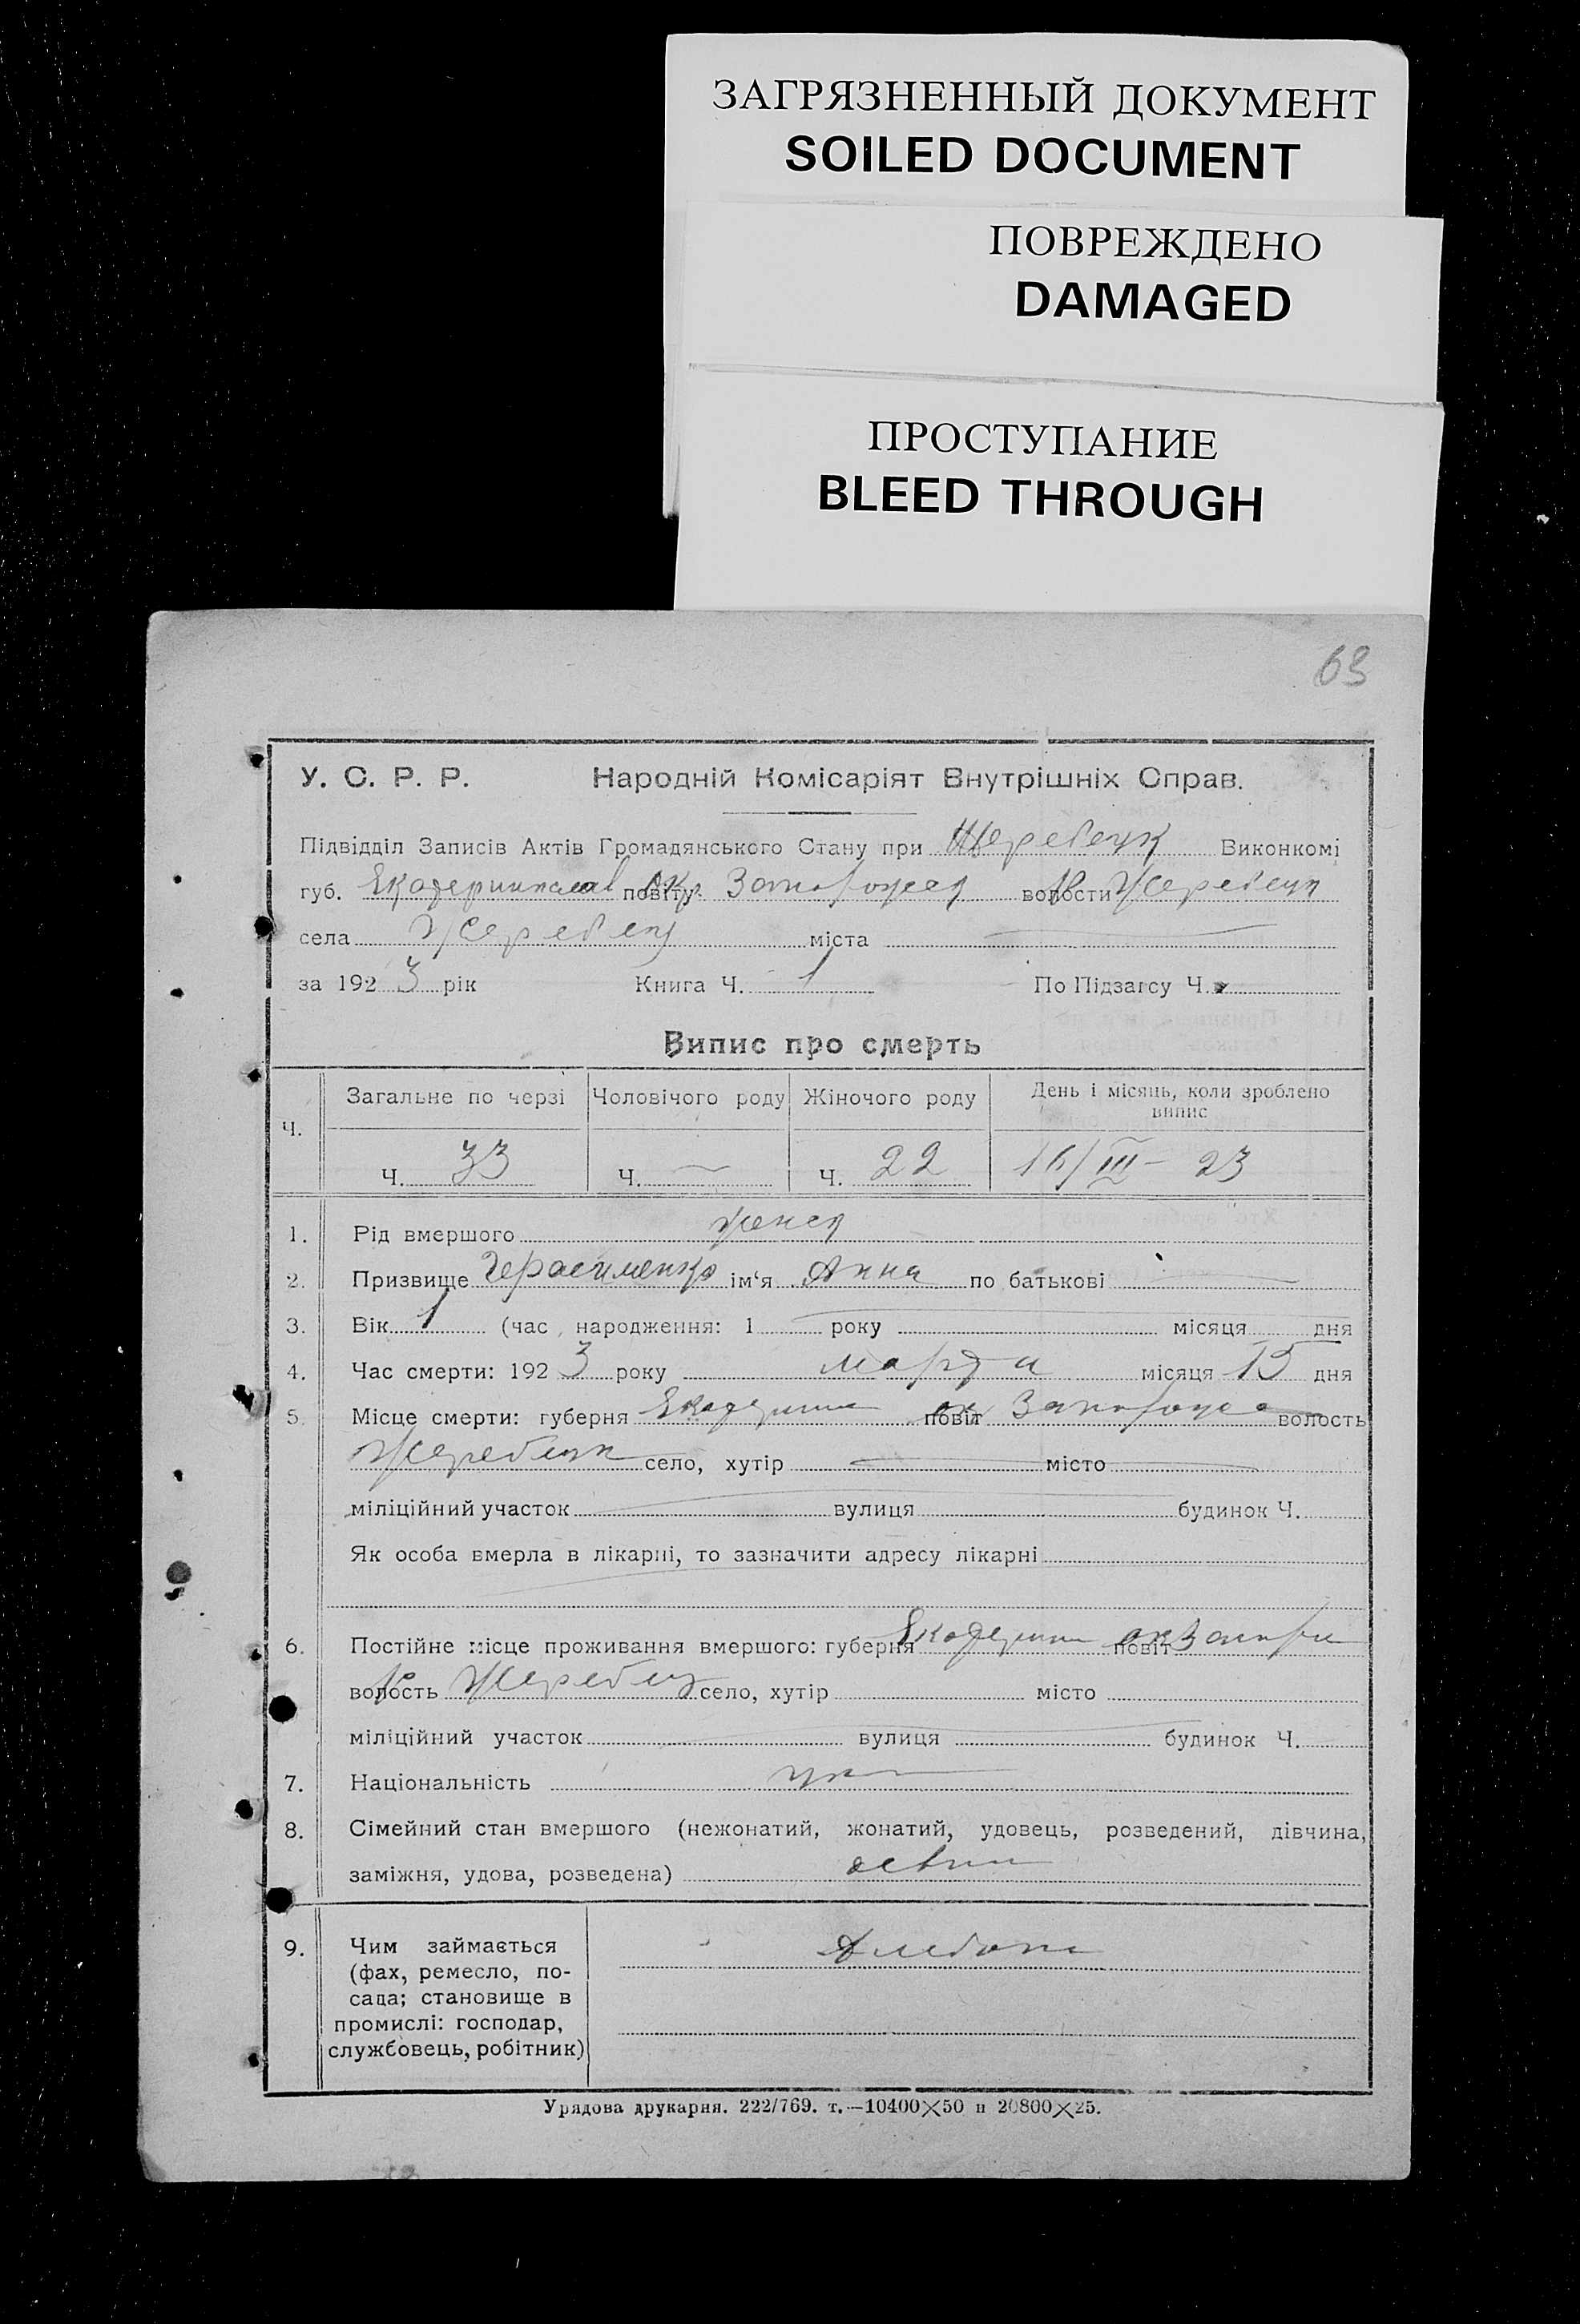 ЗАГРЯЗНЕННЫЙ ДОКУМЕНТ
SOILED DOCUMENT
ПОВРЕЖДЕНО
DAMAGED
ПРОСТУПАНИЕ
BLEED THROUGH
63
У. С. Р. Р. Народній Комісаріят Внутрішніх Справ.
Підвідділ Записів Актів Громадянського Стану при Жеребецк Виконкомі
губ. Екатеринослав повіту Окр. Запорожск волости Жеребецк
села Жеребец міста
за 1923 рік Книга Ч. 1 По Підзагсу Ч.
Випис про смерть
Ч. Загальне по черзі Чоловічого роду Жіночого роду День і місяць, коли зроблено випис
Ч. 33 Ч. — Ч. 22 16/III – 23
1. Рід вмершого женск
2. Призвище Герасименко ім'я Анна по батькові —
3. Вік 1 (час народження: 1 року місяця дня
4. Час смерти: 1923 року марта місяця 15 дня
5. Місце смерти: губерня Екатерин повіт ок Запорожс волость
Жеребецк село, хутір — місто —
міліційний участок вулиця будинок Ч.
Як особа вмерла в лікарні, то зазначити адресу лікарні
6. Постійне місце проживання вмершого: губерня Екатерин повіт ок Запор
волость Жеребец село, хутір місто
міліційний участок вулиця будинок Ч.
7. Національність укр
8. Сімейний стан вмершого (нежонатий, жонатий, удовець, розведений, дівчина,
заміжня, удова, розведена)
9. Чим займається
(фах, ремесло, по-
сада; становище в
промислі: господар,
службовець, робітник)
Урядова друкарня. 222/769. т.—10400×50 и 20800×25.